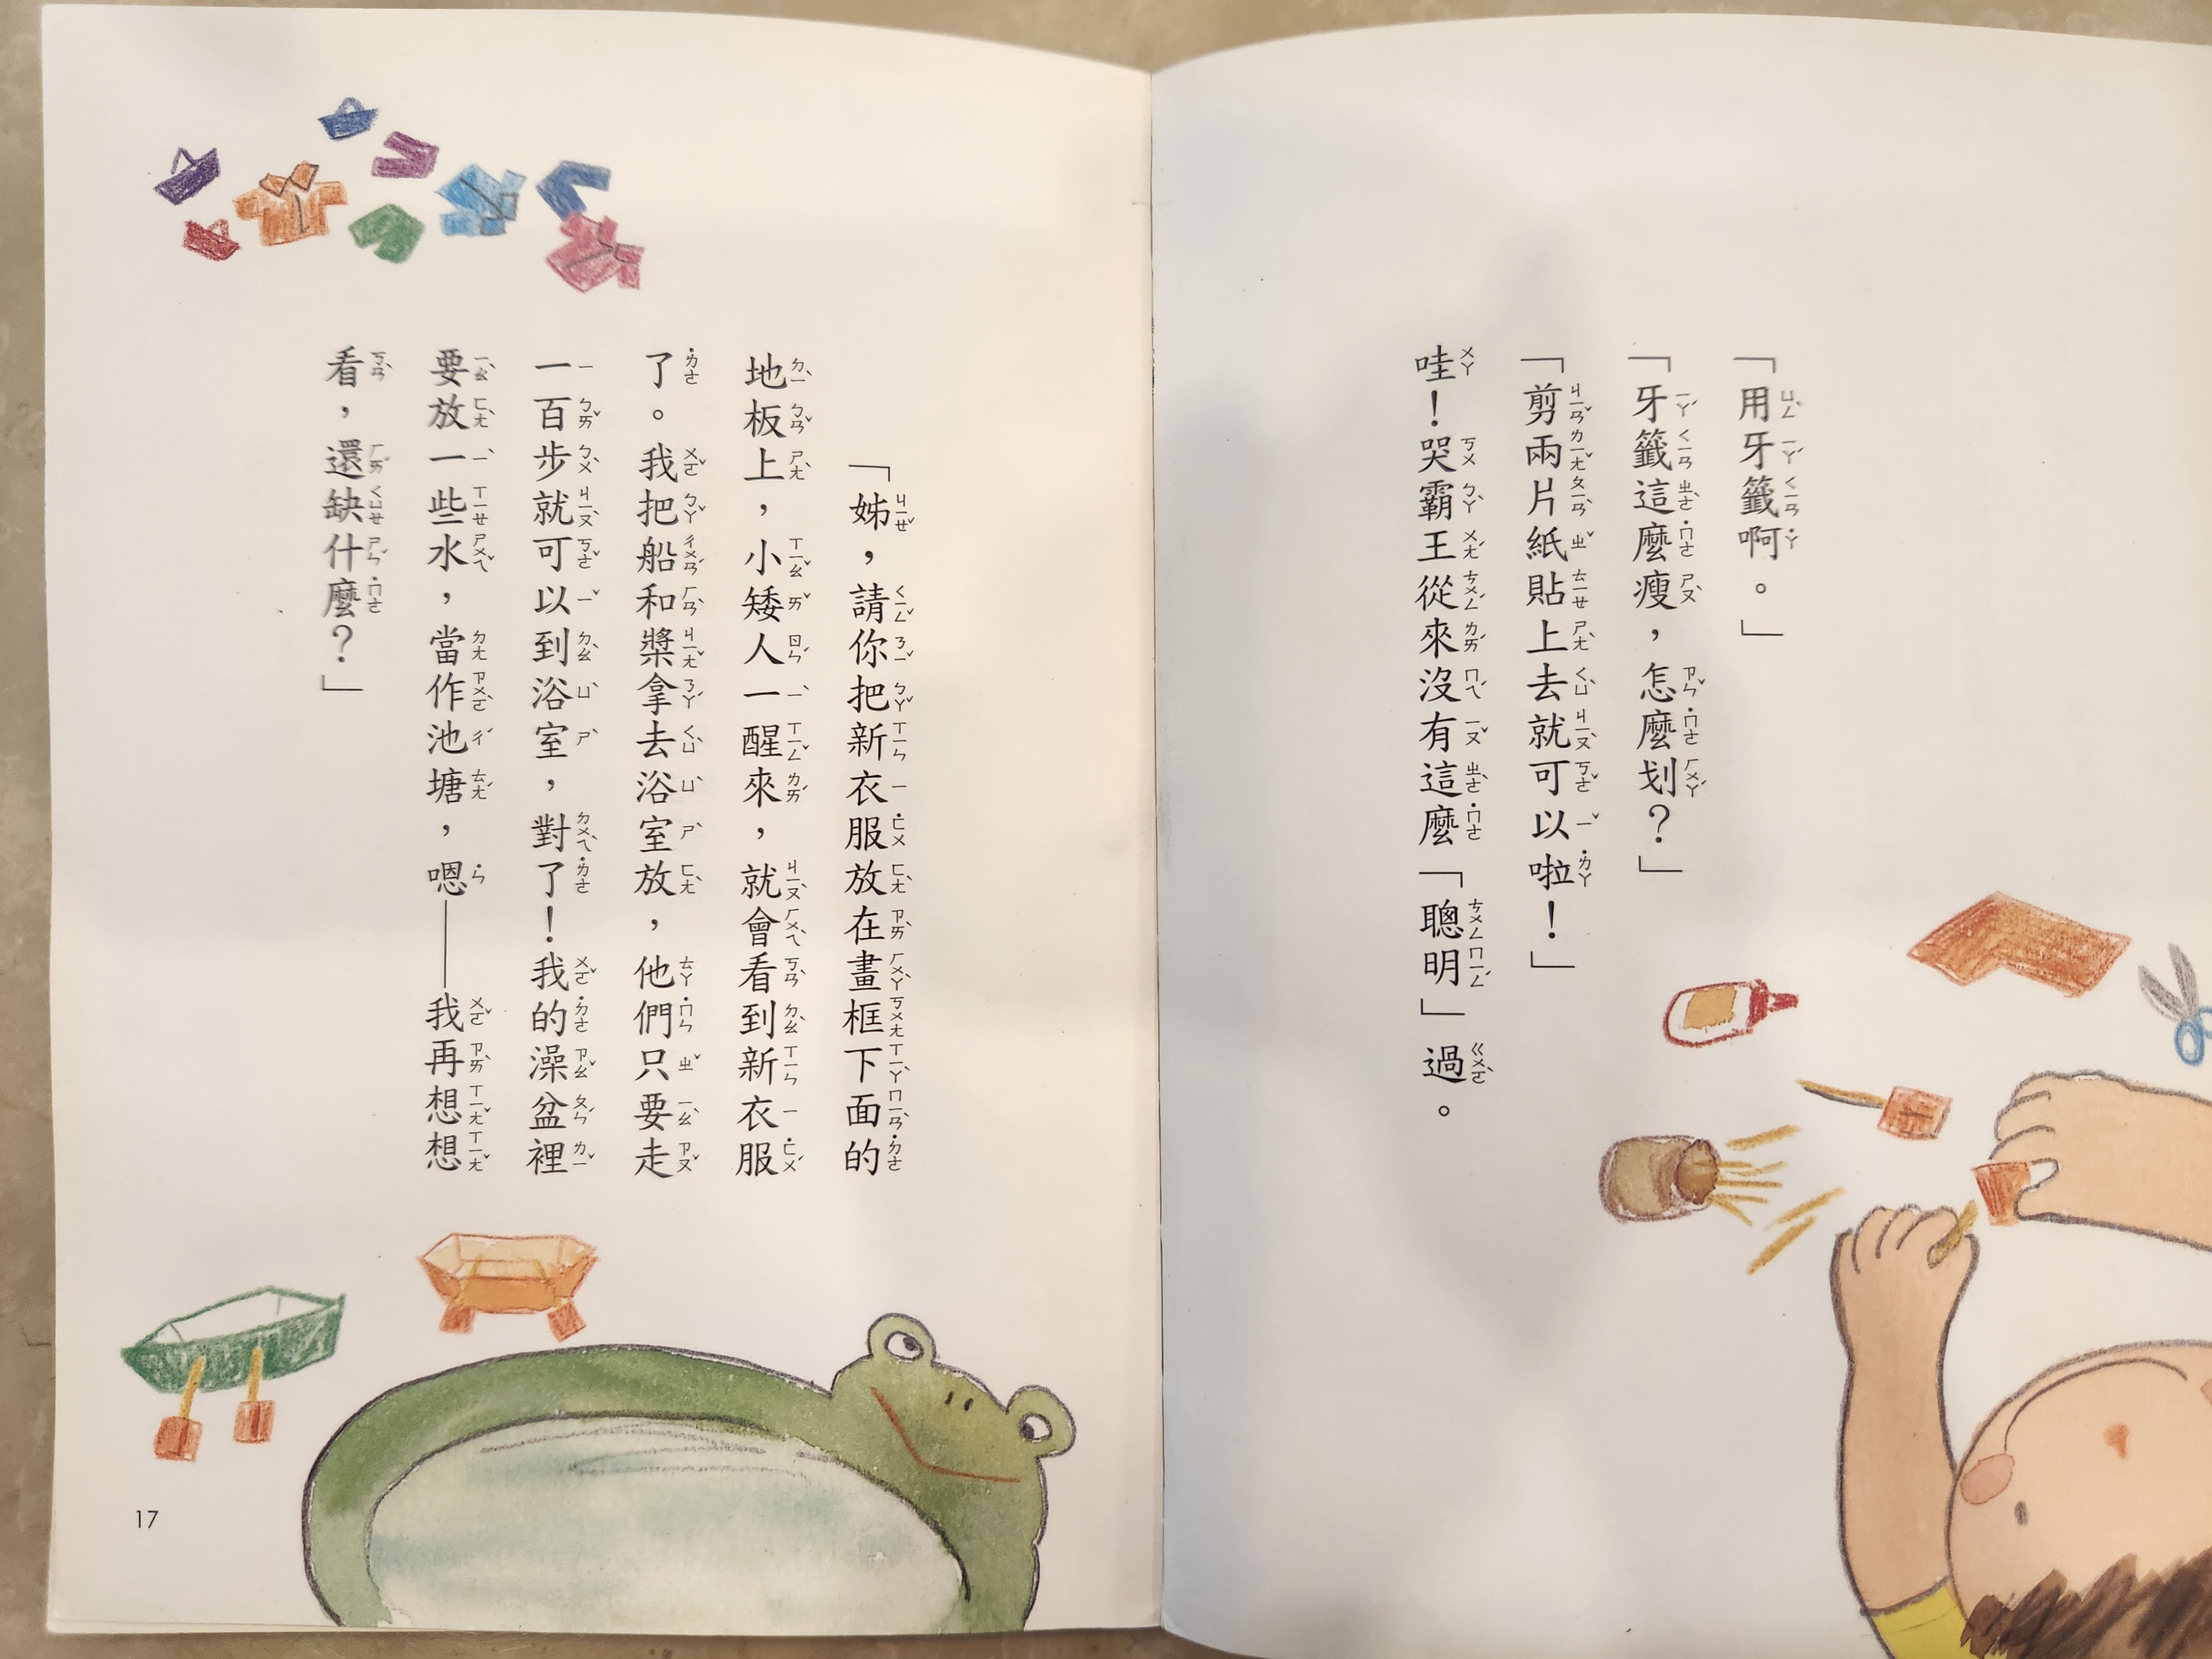 「用牙籤啊。」
「牙籤這麼瘦，怎麼划？」
「剪兩片紙貼上去就可以啦！」
哇！哭霸王從來沒有這麼「聰明」過。
「姊，請你把新衣服放在畫框下面的
地板上，小矮人一醒來，就會看到新衣服
了。我把船和槳拿去浴室放，他們只要走
一百步就可以到浴室，對了！我的澡盆裡
要放一些水，當作池塘，嗯——我再想想
看，還缺什麼？」
17